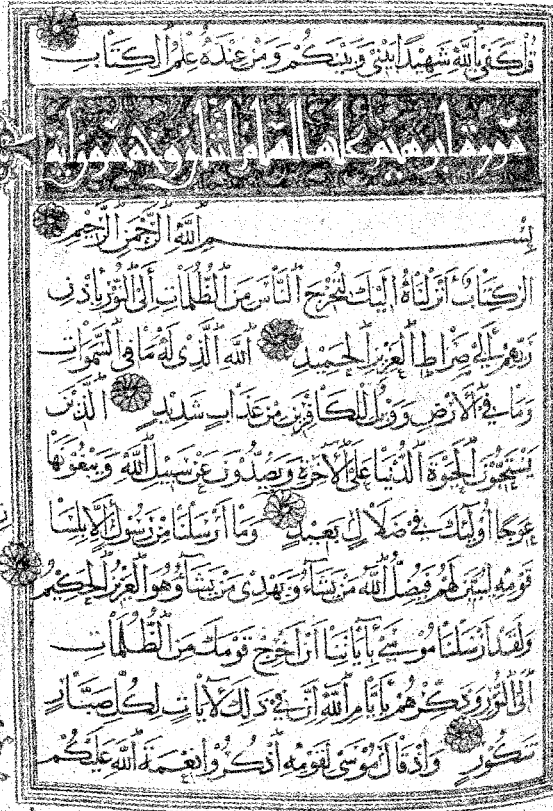 قُلْ كَفَىٰ بِاللَّهِ شَهِيدًا بَيْنِي وَبَيْنَكُمْ وَمَنْ عِنْدَهُ عِلْمُ الْكِتَابِ
بِسْمِ اللَّهِ الرَّحْمَنِ الرَّحِيمِ
الر كِتَابٌ أَنْزَلْنَاهُ إِلَيْكَ لِتُخْرِجَ النَّاسَ مِنَ الظُّلُمَاتِ إِلَى النُّورِ بِإِذْنِ
رَبِّهِمْ إِلَىٰ صِرَاطِ الْعَزِيزِ الْحَمِيدِ اللَّهِ الَّذِي لَهُ مَا فِي السَّمَوَاتِ
وَمَا فِي الْأَرْضِ وَوَيْلٌ لِلْكَافِرِينَ مِنْ عَذَابٍ شَدِيدٍ الَّذِينَ
يَسْتَحِبُّونَ الْحَيَوةَ الدُّنْيَا عَلَى الْآخِرَةِ وَيَصُدُّونَ عَنْ سَبِيلِ اللَّهِ وَيَبْغُونَهَا
عِوَجًا أُولَئِكَ فِي ضَلَالٍ بَعِيدٍ وَمَا أَرْسَلْنَا مِنْ رَسُولٍ إِلَّا بِلِسَانِ
قَوْمِهِ لِيُبَيِّنَ لَهُمْ فَيُضِلُّ اللَّهُ مَنْ يَشَاءُ وَيَهْدِي مَنْ يَشَاءُ وَهُوَ الْعَزِيزُ الْحَكِيمُ
وَلَقَدْ أَرْسَلْنَا مُوسَىٰ بِآيَاتِنَا أَنْ أَخْرِجْ قَوْمَكَ مِنَ الظُّلُمَاتِ
إِلَى النُّورِ وَذَكِّرْهُمْ بِأَيَّامِ اللَّهِ إِنَّ فِي ذَلِكَ لَآيَاتٍ لِكُلِّ صَبَّارٍ
شَكُورٍ وَإِذْ قَالَ مُوسَىٰ لِقَوْمِهِ اذْكُرُوا نِعْمَةَ اللَّهِ عَلَيْكُمْ